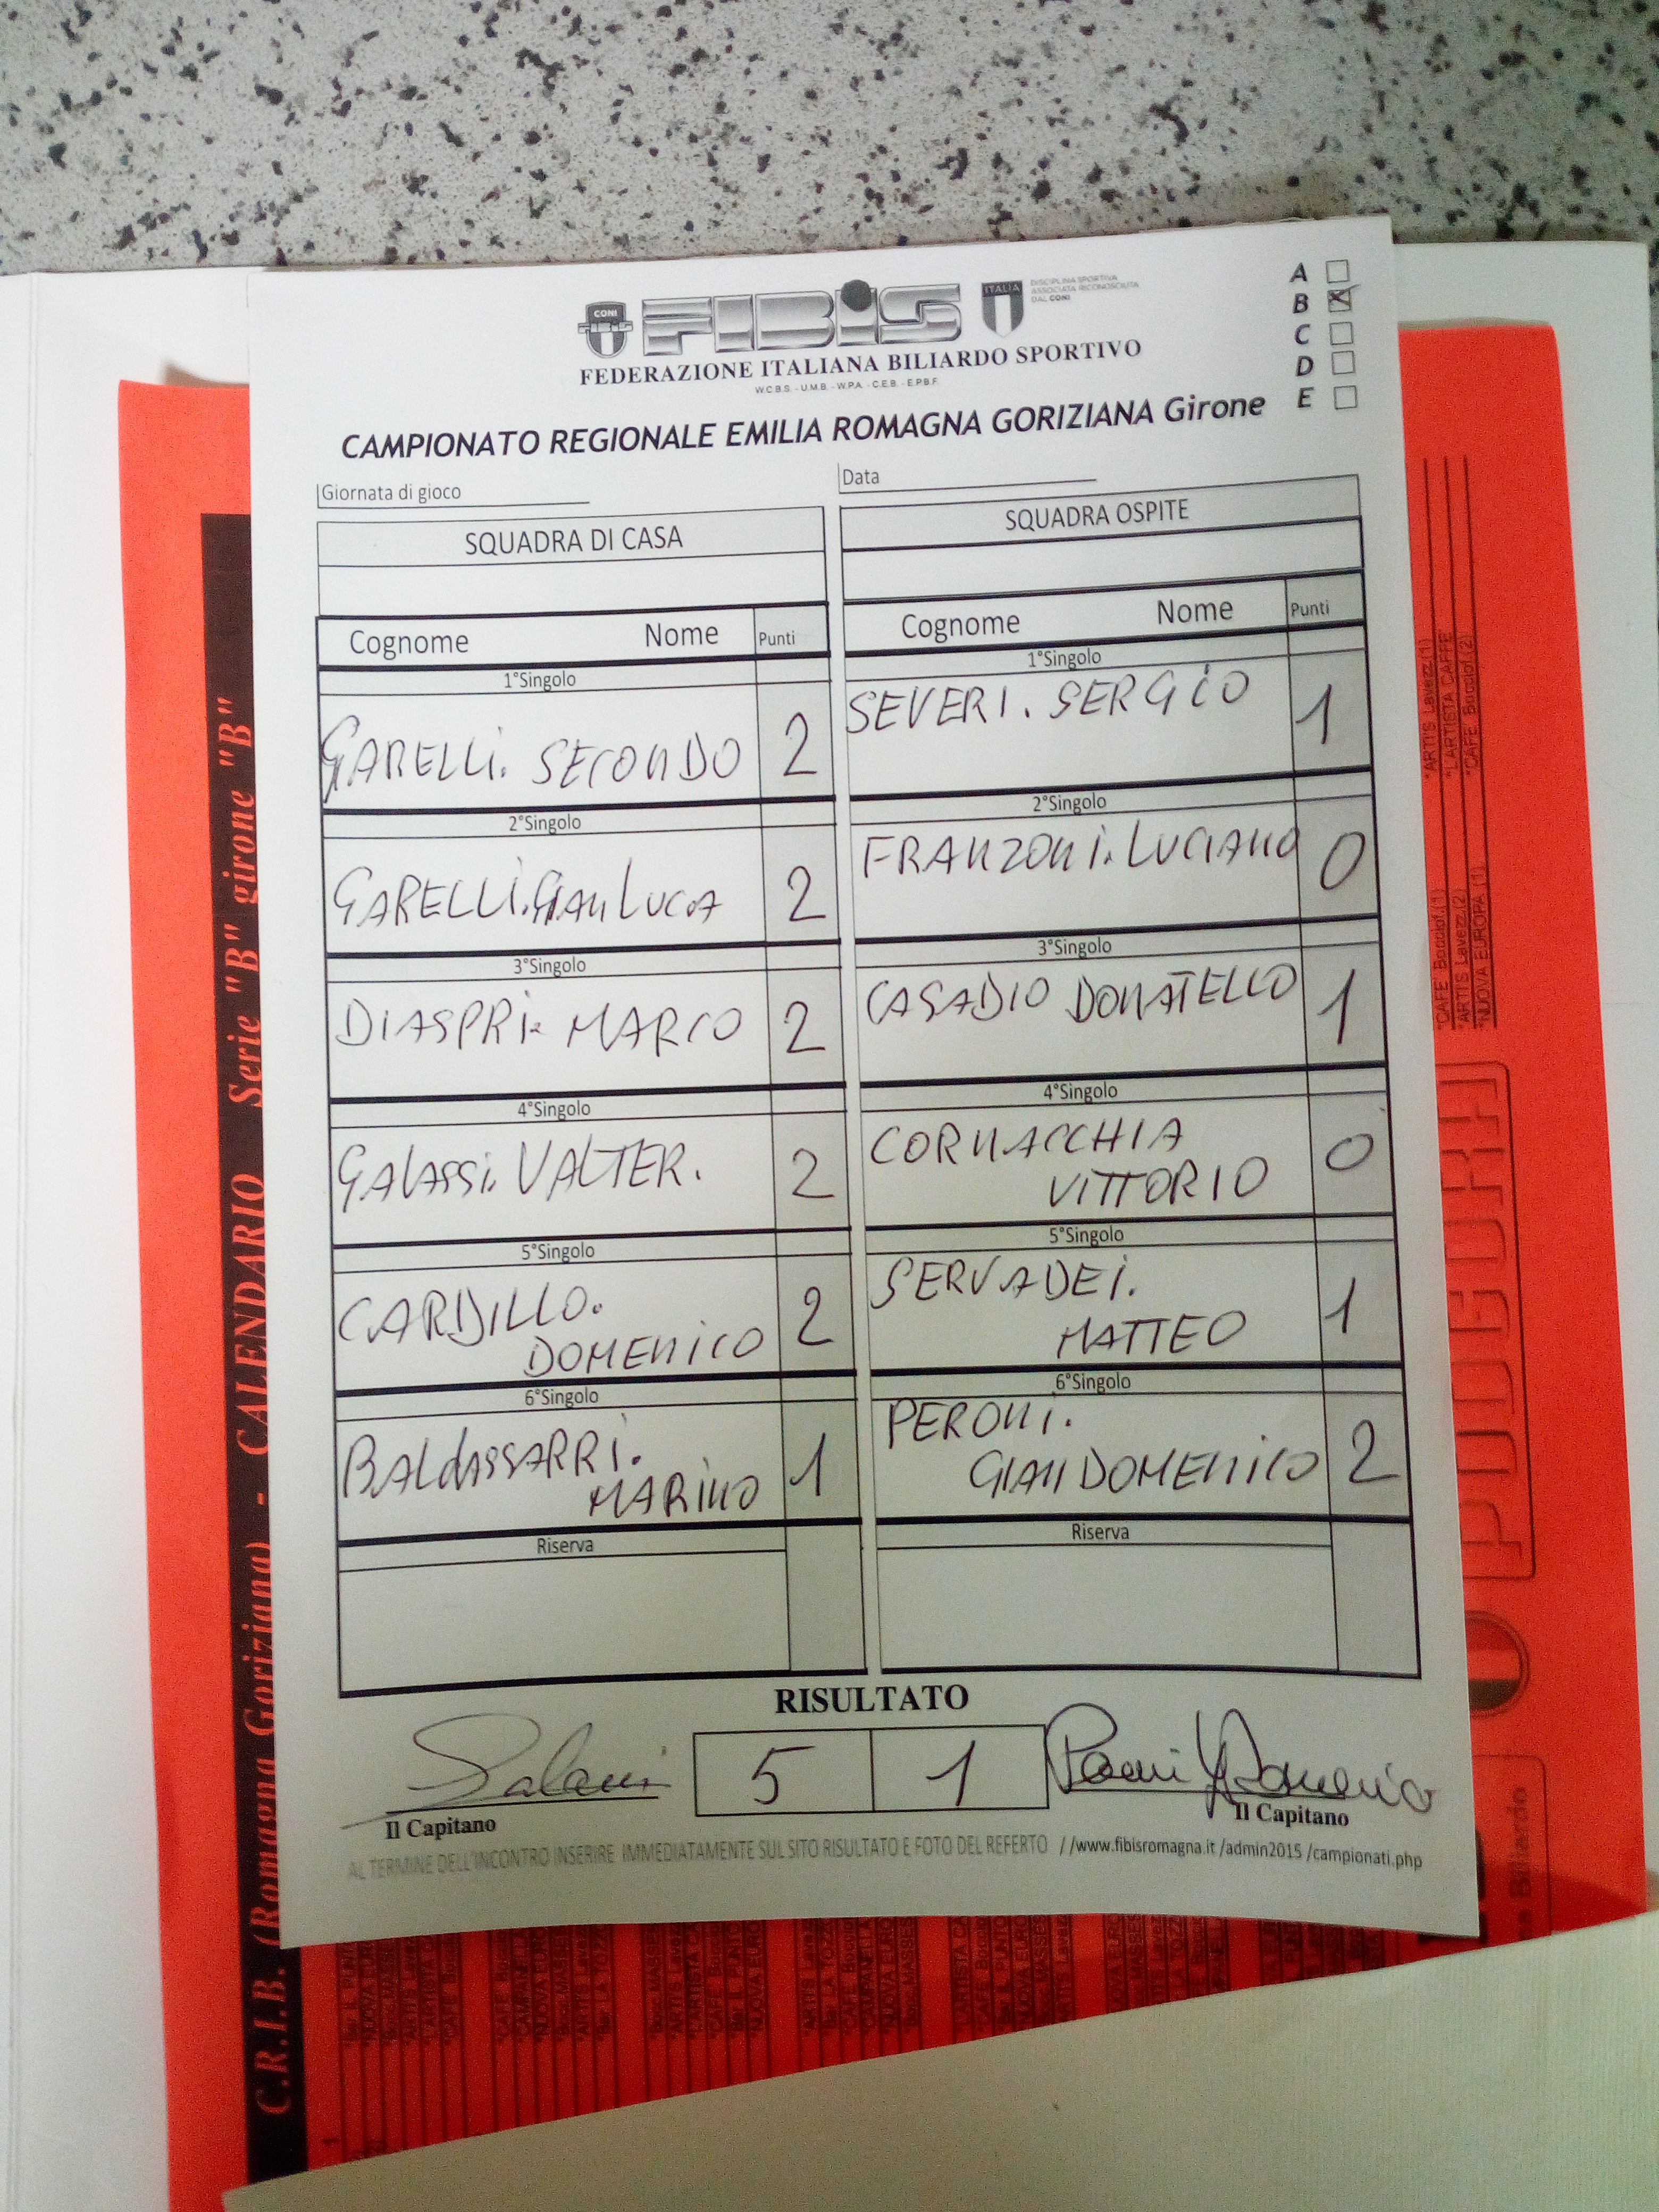 CONI
FIBiS
ITALIA
DISCIPLINA SPORTIVA
ASSOCIATA RICONOSCIUTA
DAL CONI
FEDERAZIONE ITALIANA BILIARDO SPORTIVO
W.C.B.S. - U.M.B. - W.P.A. - C.E.B. - E.P.B.F.
A
B X
C
D
E
CAMPIONATO REGIONALE EMILIA ROMAGNA GORIZIANA Girone
Giornata di gioco
Data
SQUADRA DI CASA
SQUADRA OSPITE
Cognome Nome Punti
Cognome Nome Punti
1°Singolo
1°Singolo
GARELLI. SECONDO 2
SEVERI. SERGIO 1
2°Singolo
2°Singolo
GARELLI. GIANLUCA 2
FRANZONI. LUCIANO 0
3°Singolo
3°Singolo
DIASPRI. MARCO 2
CASADIO DONATELLO 1
4°Singolo
4°Singolo
GALASSI. VALTER. 2
CORNACCHIA
VITTORIO 0
5°Singolo
5°Singolo
CARDILLO.
DOMENICO 2
SERVADEI.
MATTEO 1
6°Singolo
6°Singolo
BALDASSARRI.
MARINO 1
PERONI.
GIANDOMENICO 2
Riserva
Riserva
RISULTATO
5 1
Il Capitano
Il Capitano
AL TERMINE DELL'INCONTRO INSERIRE IMMEDIATAMENTE SUL SITO RISULTATO E FOTO DEL REFERTO //www.fibisromagna.it /admin2015 /campionati.php
C.R.I.B. (Romagna Goriziana) - CALENDARIO Serie "B" girone "B"
*ARTIS Lavezz.(1)
*L'ARTISTA CAFFE
*CAFE' Bocciof.(2)
*CAFE' Bocciof.(1)
*ARTIS Lavezz.(2)
*NUOVA EUROPA (1)
Biliardo